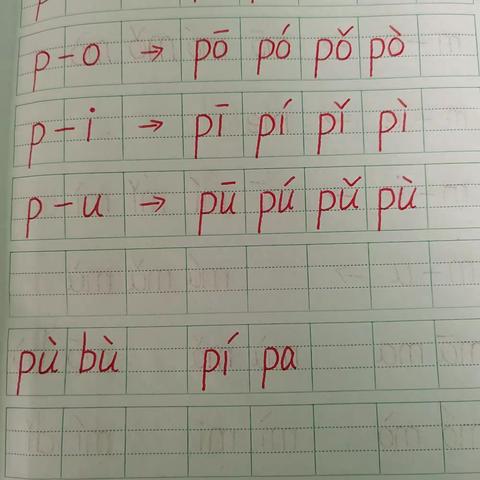 p-o → pō pó pǒ pò
p-i → pī pí pǐ pì
p-u → pū pú pǔ pù
pù bù pí pa